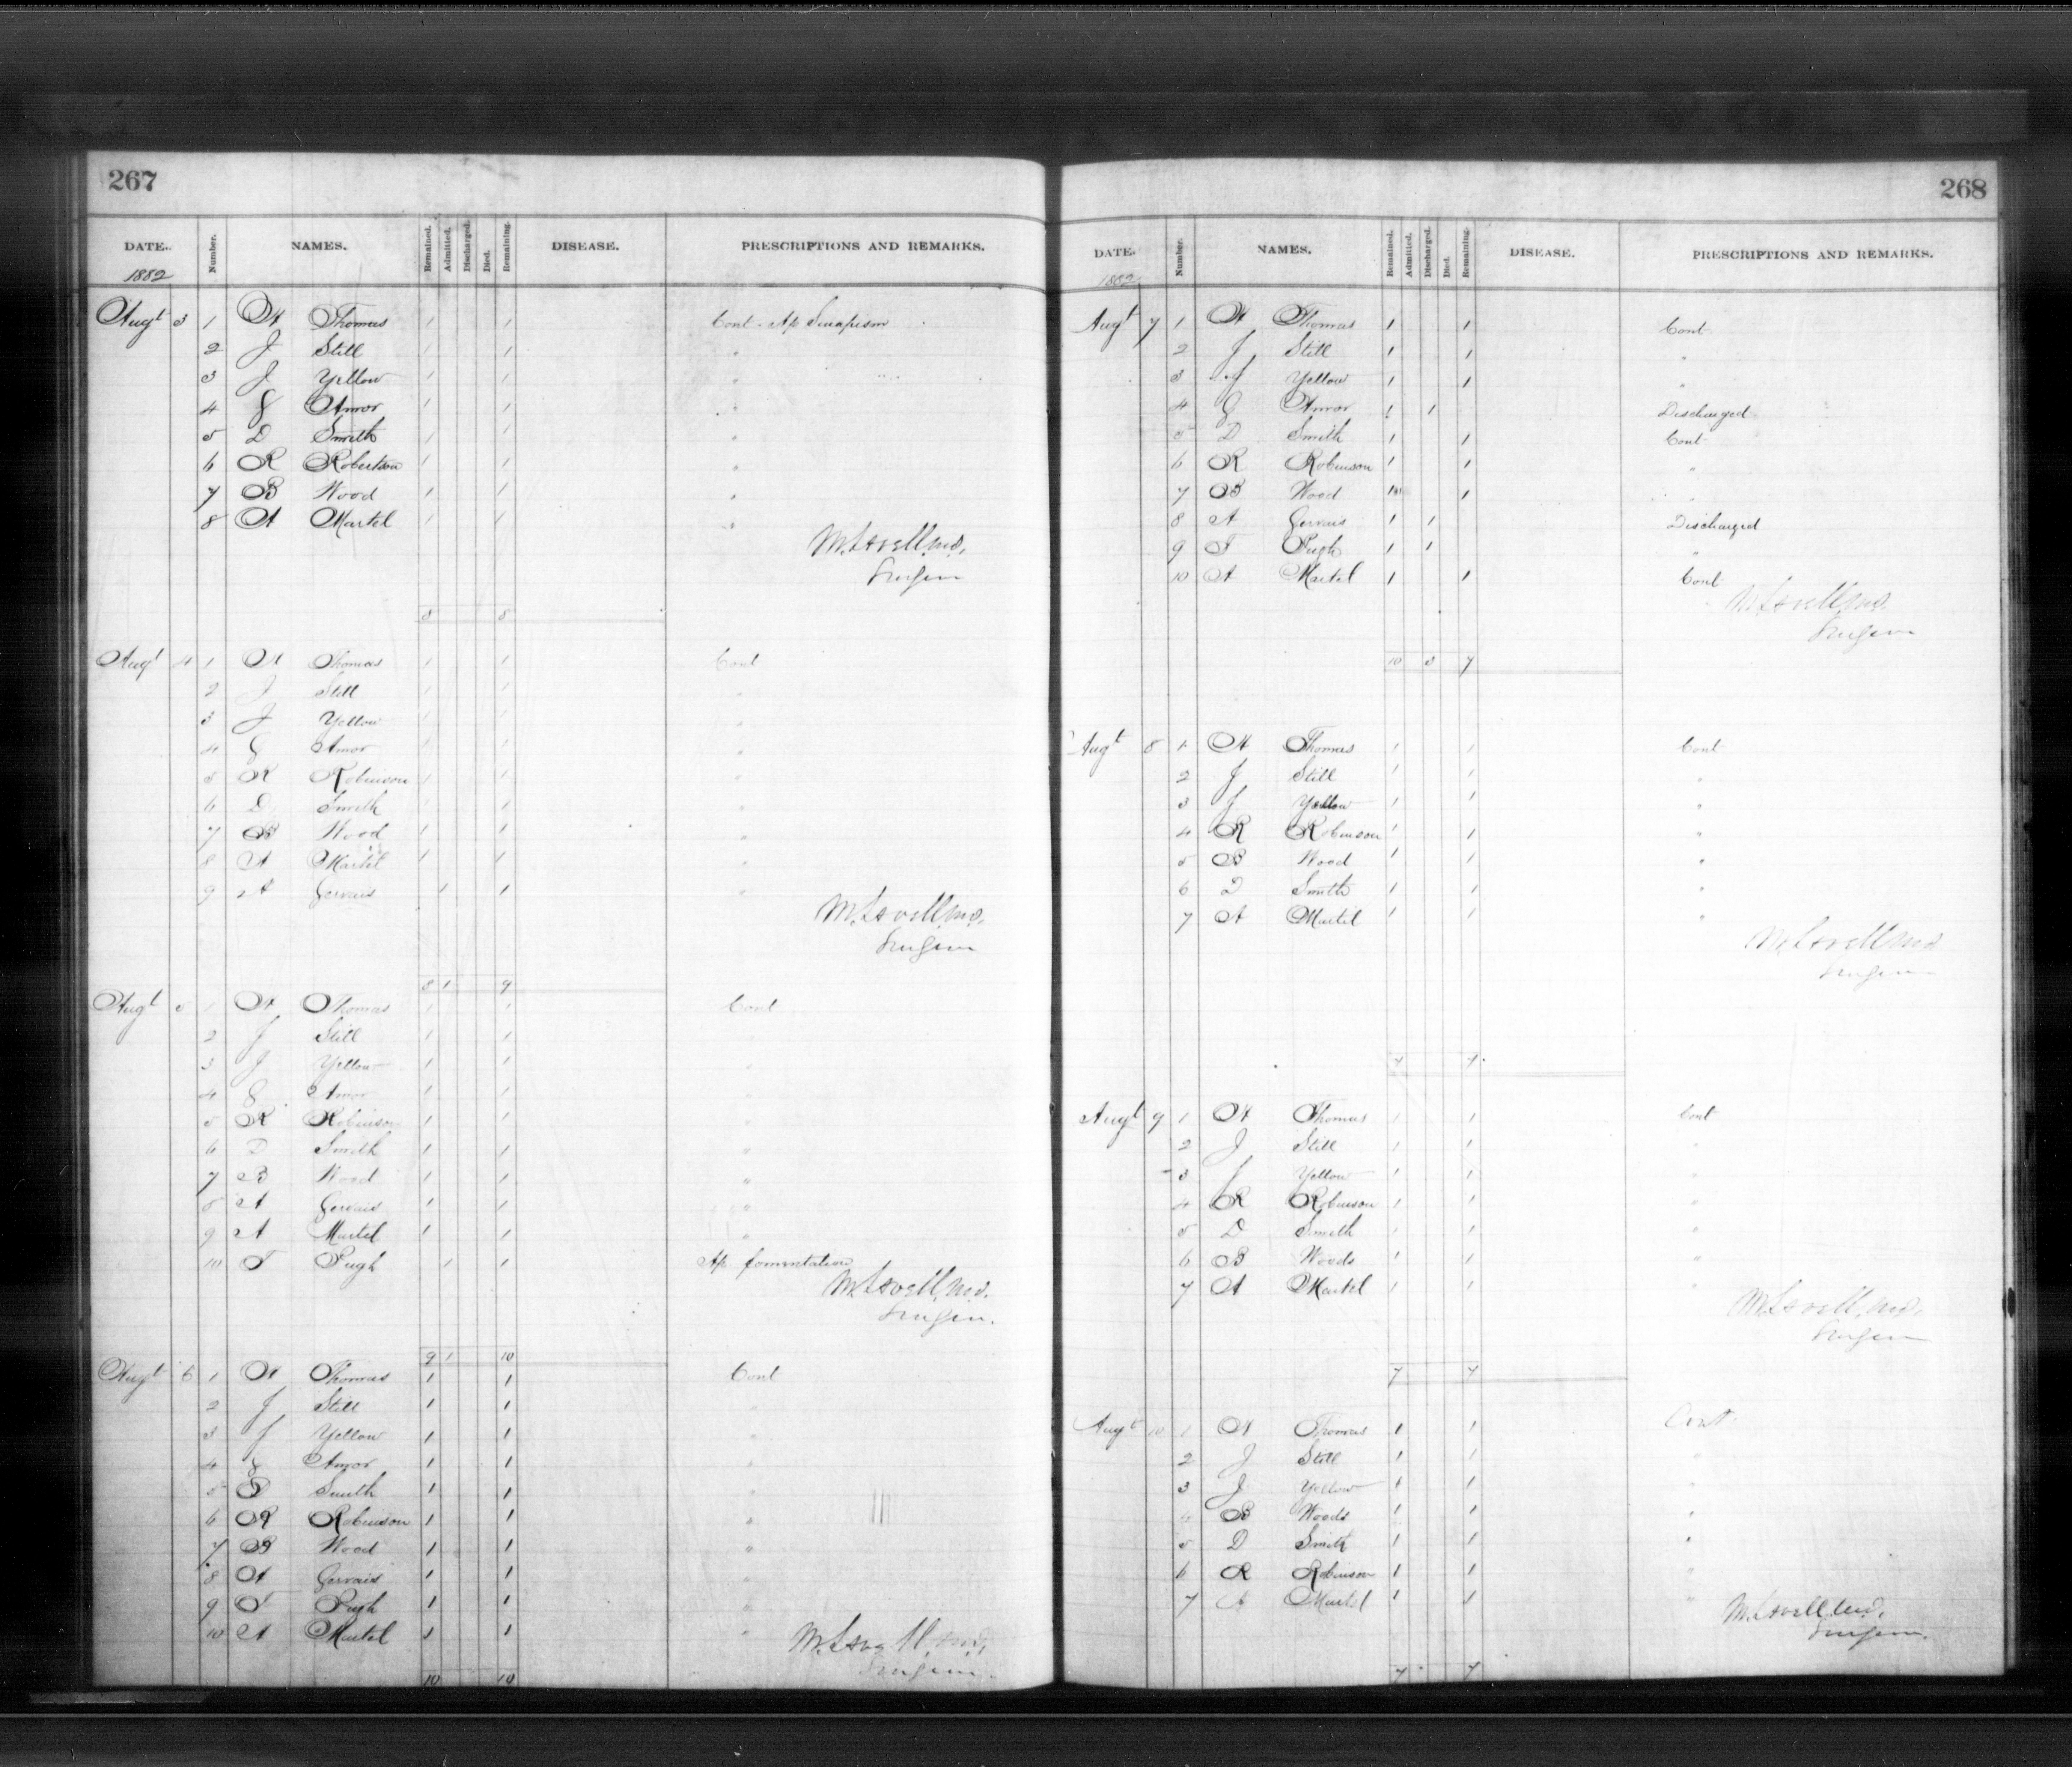 267
DATE. Number. NAMES. Remained. Admitted. Discharged. Died. Remaining. DISEASE. PRESCRIPTIONS AND REMARKS.
1882
Augt 3 1 H Thomas 1 1 Cont. Ap Sinapism
2 J Still 1 1 "
3 J Yellow 1 1 "
4 G Amor 1 1 "
5 D Smith 1 1 "
6 R Robertson 1 1 "
7 B Wood 1 1 "
8 A Martel 1 1 "
M. Lavell, M.D.
Surgeon
8 8
Augt 4 1 H Thomas 1 1 Cont
2 J Still 1 1 "
3 J Yellow 1 1 "
4 G Amor 1 1 "
5 R Robinson 1 1 "
6 D Smith 1 1 "
7 B Wood 1 1 "
8 A Martel 1 1 "
9 A Gervais 1 1 "
M. Lavell, M.D.
Surgeon
8 1 9
Augt 5 1 H Thomas 1 1 Cont
2 J Still 1 1 "
3 J Yellow 1 1 "
4 G Amor 1 1 "
5 R Robinson 1 1 "
6 D Smith 1 1 "
7 B Wood 1 1 "
8 A Gervais 1 1 "
9 A Martel 1 1 "
10 T Pugh 1 1 Ap fomentation
M. Lavell, M.D.
Surgeon.
9 1 10
Augt 6 1 H Thomas 1 1 Cont
2 J Still 1 1 "
3 J Yellow 1 1 "
4 G Amor 1 1 "
5 D Smith 1 1 "
6 R Robinson 1 1 "
7 B Wood 1 1 "
8 A Gervais 1 1 "
9 T Pugh 1 1 "
10 A Martel 1 1 "
M. Lavell, M.D.
Surgeon.
10 10
268
DATE. Number. NAMES. Remained. Admitted. Discharged. Died. Remaining. DISEASE. PRESCRIPTIONS AND REMARKS.
1882
Augt 7 1 H Thomas 1 1 Cont
2 J Still 1 1 "
3 J Yellow 1 1 "
4 G Amor 1 1 Discharged
5 D Smith 1 1 Cont
6 R Robinson 1 1 "
7 B Wood 1 1 "
8 A Gervais 1 1 Discharged
9 T Pugh 1 1 "
10 A Martel 1 1 Cont
M. Lavell, M.D.
Surgeon
10 3 7
Augt 8 1 H Thomas 1 1 Cont
2 J Still 1 1 "
3 J Yellow 1 1 "
4 R Robinson 1 1 "
5 B Wood 1 1 "
6 D Smith 1 1 "
7 A Martel 1 1 "
M. Lavell M.D
Surgeon
7 7
Augt 9 1 H Thomas 1 1 Cont
2 J Still 1 1 "
3 J Yellow 1 1 "
4 R Robinson 1 1 "
5 D Smith 1 1 "
6 B Woods 1 1 "
7 A Martel 1 1 "
M. Lavell, M.D.
Surgeon
7 7
Augt 10 1 H Thomas 1 1 Cont
2 J Still 1 1 "
3 J Yellow 1 1 "
4 B Woods 1 1 "
5 D Smith 1 1 "
6 R Robinson 1 1 "
7 A Martel 1 1 "
M. Lavell M.D.
Surgeon.
7 7